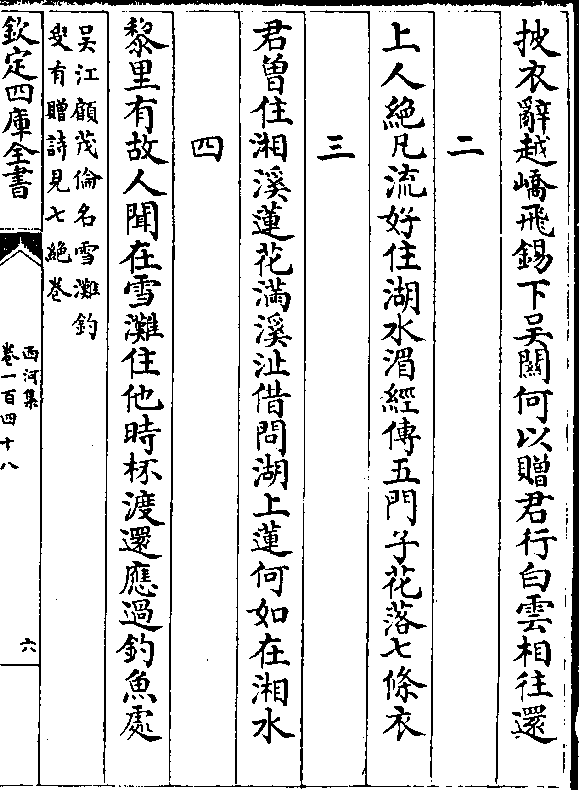 披衣辭越嶠飛錫下吳關何以贈君行白雲相往還
二
上人絶凡流好住湖水湄經傳五門子花落七條衣
三
君曽住湘溪蓮花滿溪沚借問湖上蓮何如在湘水
四
黎里有故人聞在雪灘住他時杯渡還應過釣魚處
吳江顧茂倫名雪灘釣
叟有贈詩見七絶卷
欽定四庫全書
西河集
卷一百四十八
六